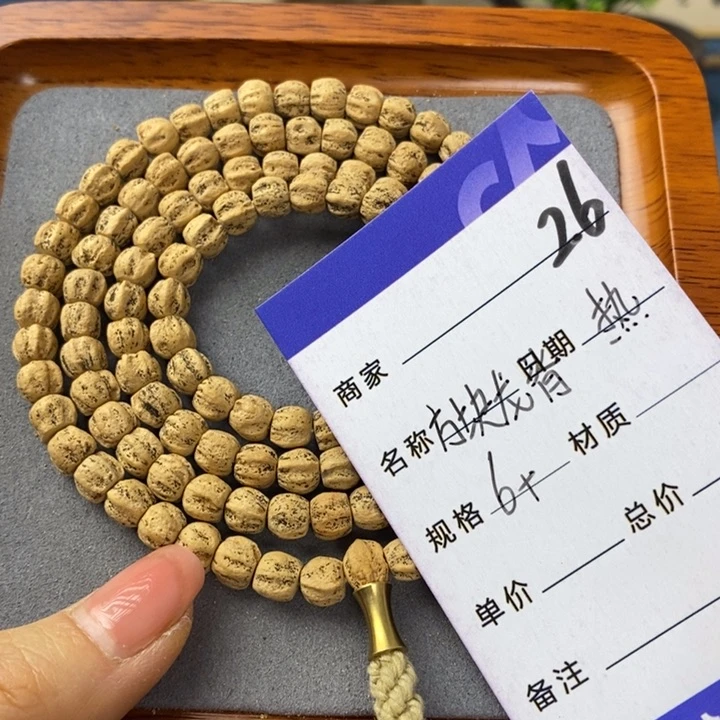 26
商家
日期 热
名称
规格 6+ 材质
单价 总价
备注